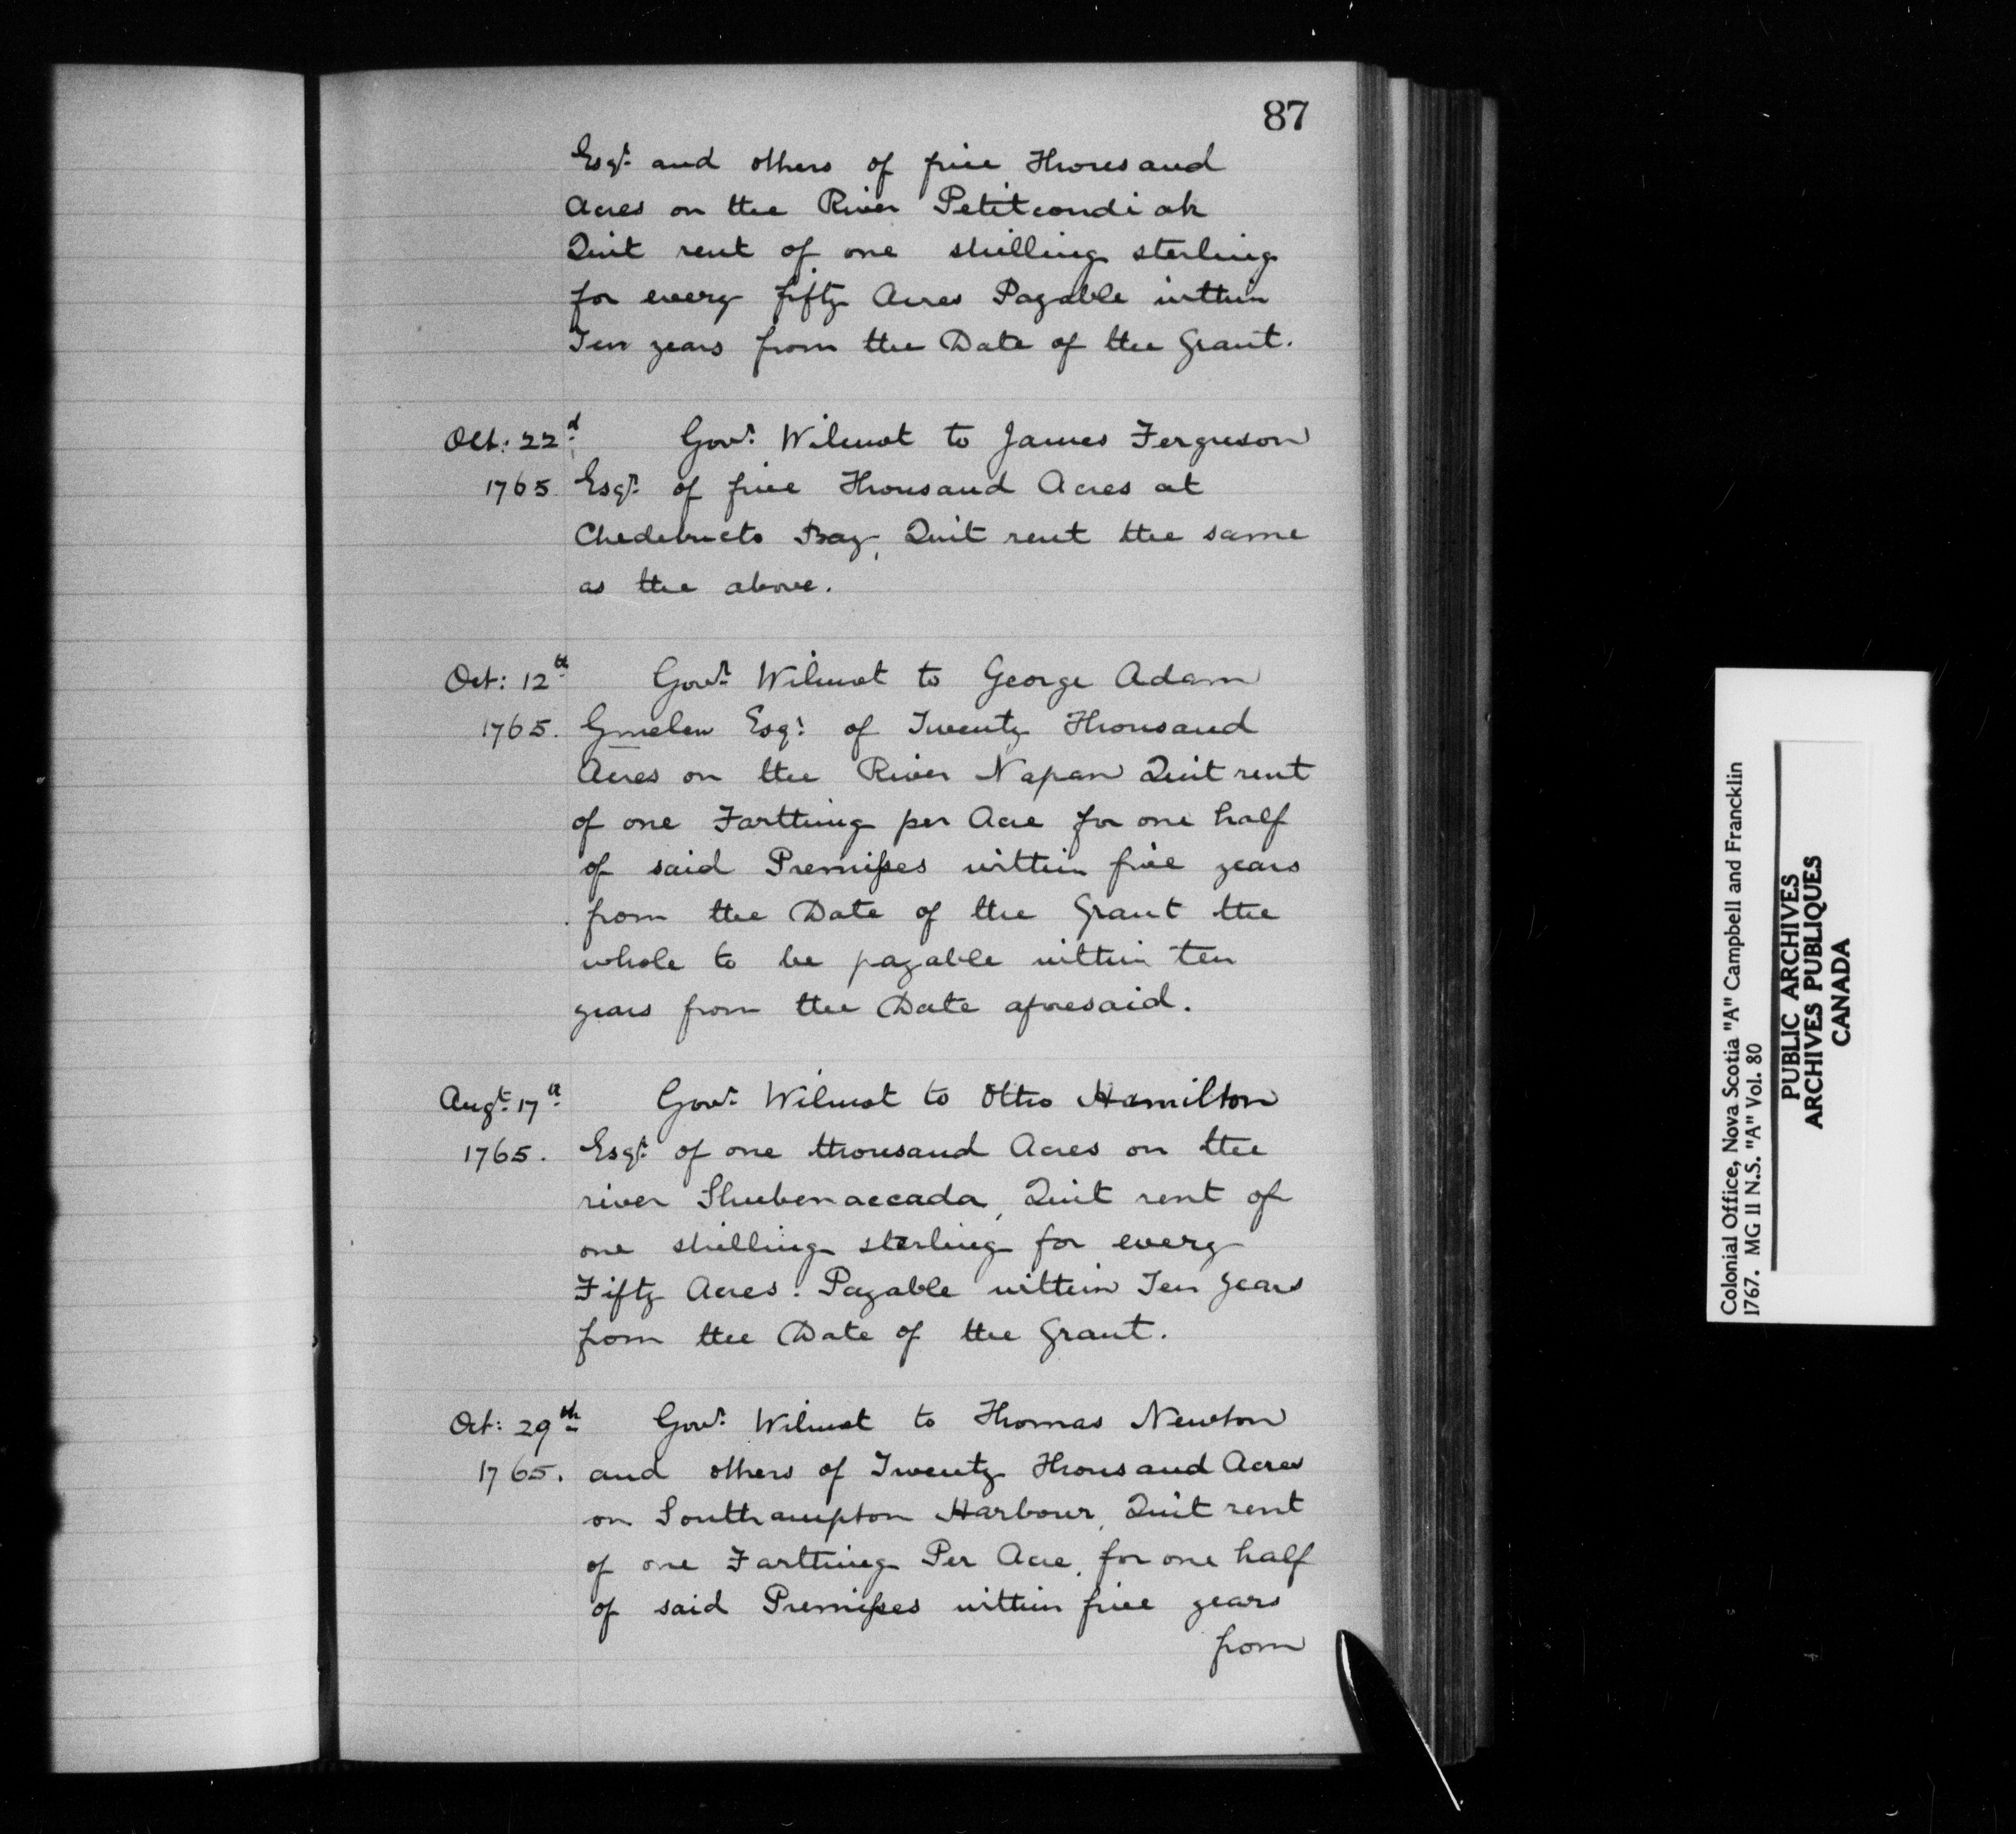 87
Esqr. and others of five Thousand
Acres on the River Petitcondiak
Quit rent of one shilling sterling
for every fifty Acres Payable within
Ten years from the Date of the Grant.
Oct: 22d. Govr. Wilmot to James Ferguson
1765 Esqr. of five Thousand Acres at
Chedebucto Bay, Quit rent the same
as the above.
Oct: 12th Govr. Wilmot to George Adam
1765. Gmelen Esqr. of Twenty Thousand
Acres on the River Napan Quit rent
of one Farthing per Acre for one half
of said Premises within five years
from the Date of the Grant the
whole to be payable within ten
years from the Date aforesaid.
Augt. 17th. Govr. Wilmot to Otho Hamilton
1765. Esqr. of one thousand Acres on the
river Shubenaccada, Quit rent of
one shilling sterling for every
Fifty Acres. Payable within Ten years
from the Date of the Grant.
Oct: 29th Govr. Wilmot to Thomas Newton
1765. and others of Twenty Thousand Acres
on Southampton Harbour, Quit rent
of one Farthing Per Acre, for one half
of said Premises within five years
from
Colonial Office, Nova Scotia "A" Campbell and Francklin
1767. MG 11 N.S. "A" Vol. 80
PUBLIC ARCHIVES
ARCHIVES PUBLIQUES
CANADA